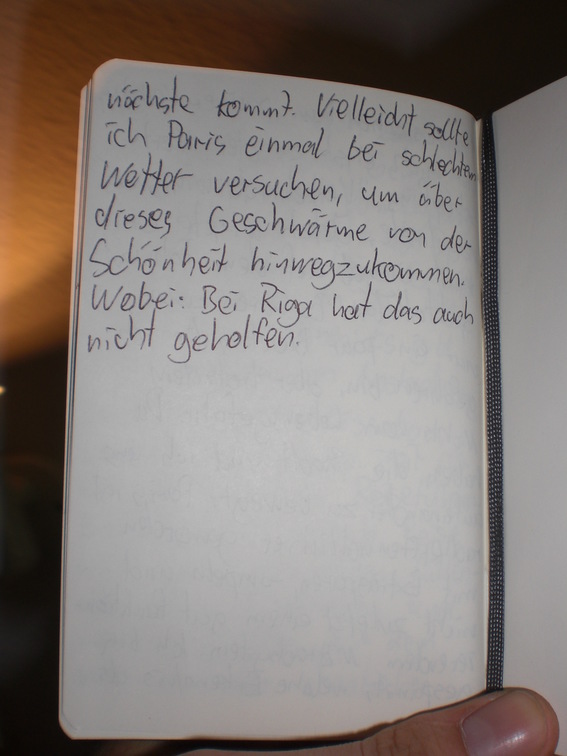 nächste kommt. Vielleicht sollte
ich Paris einmal bei schlechtem
Wetter versuchen, um über
dieses Geschwärme von der
Schönheit hinwegzukommen.
Wobei: Bei Riga hat das auch
nicht geholfen.